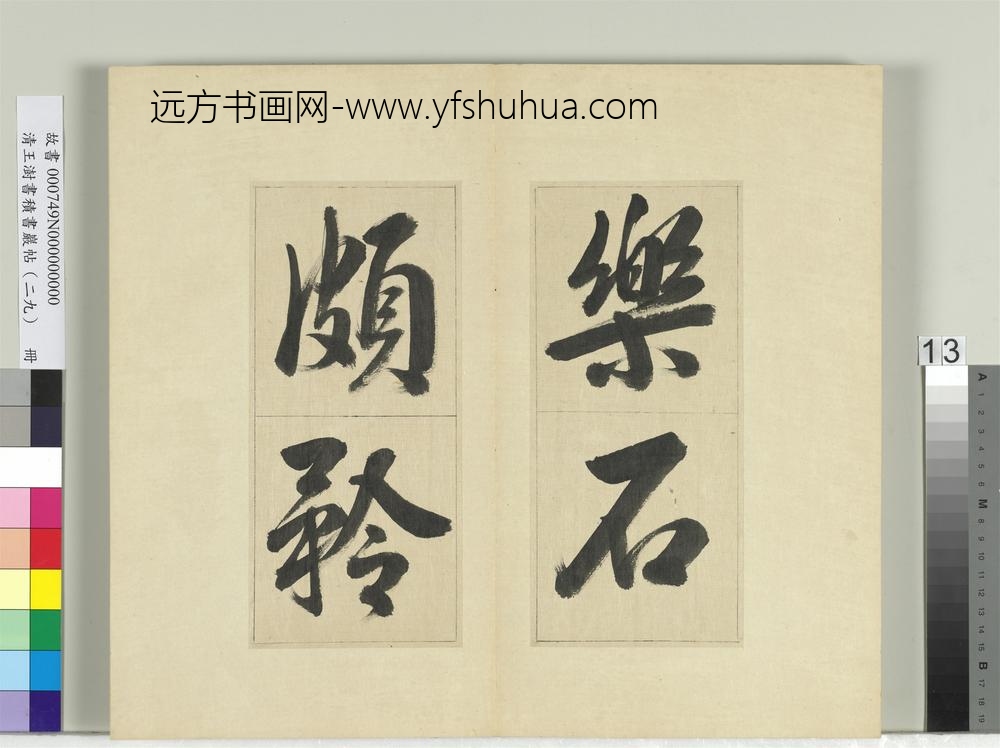 远方书画网-www.yfshuhua.com
樂石
頗矜
故書 000749N000000000
清王澍書積書巖帖(二九) 冊
13
A 1 2 3 4 5 6 M 8 9 10 11 12 13 14 15 B 17 18 19